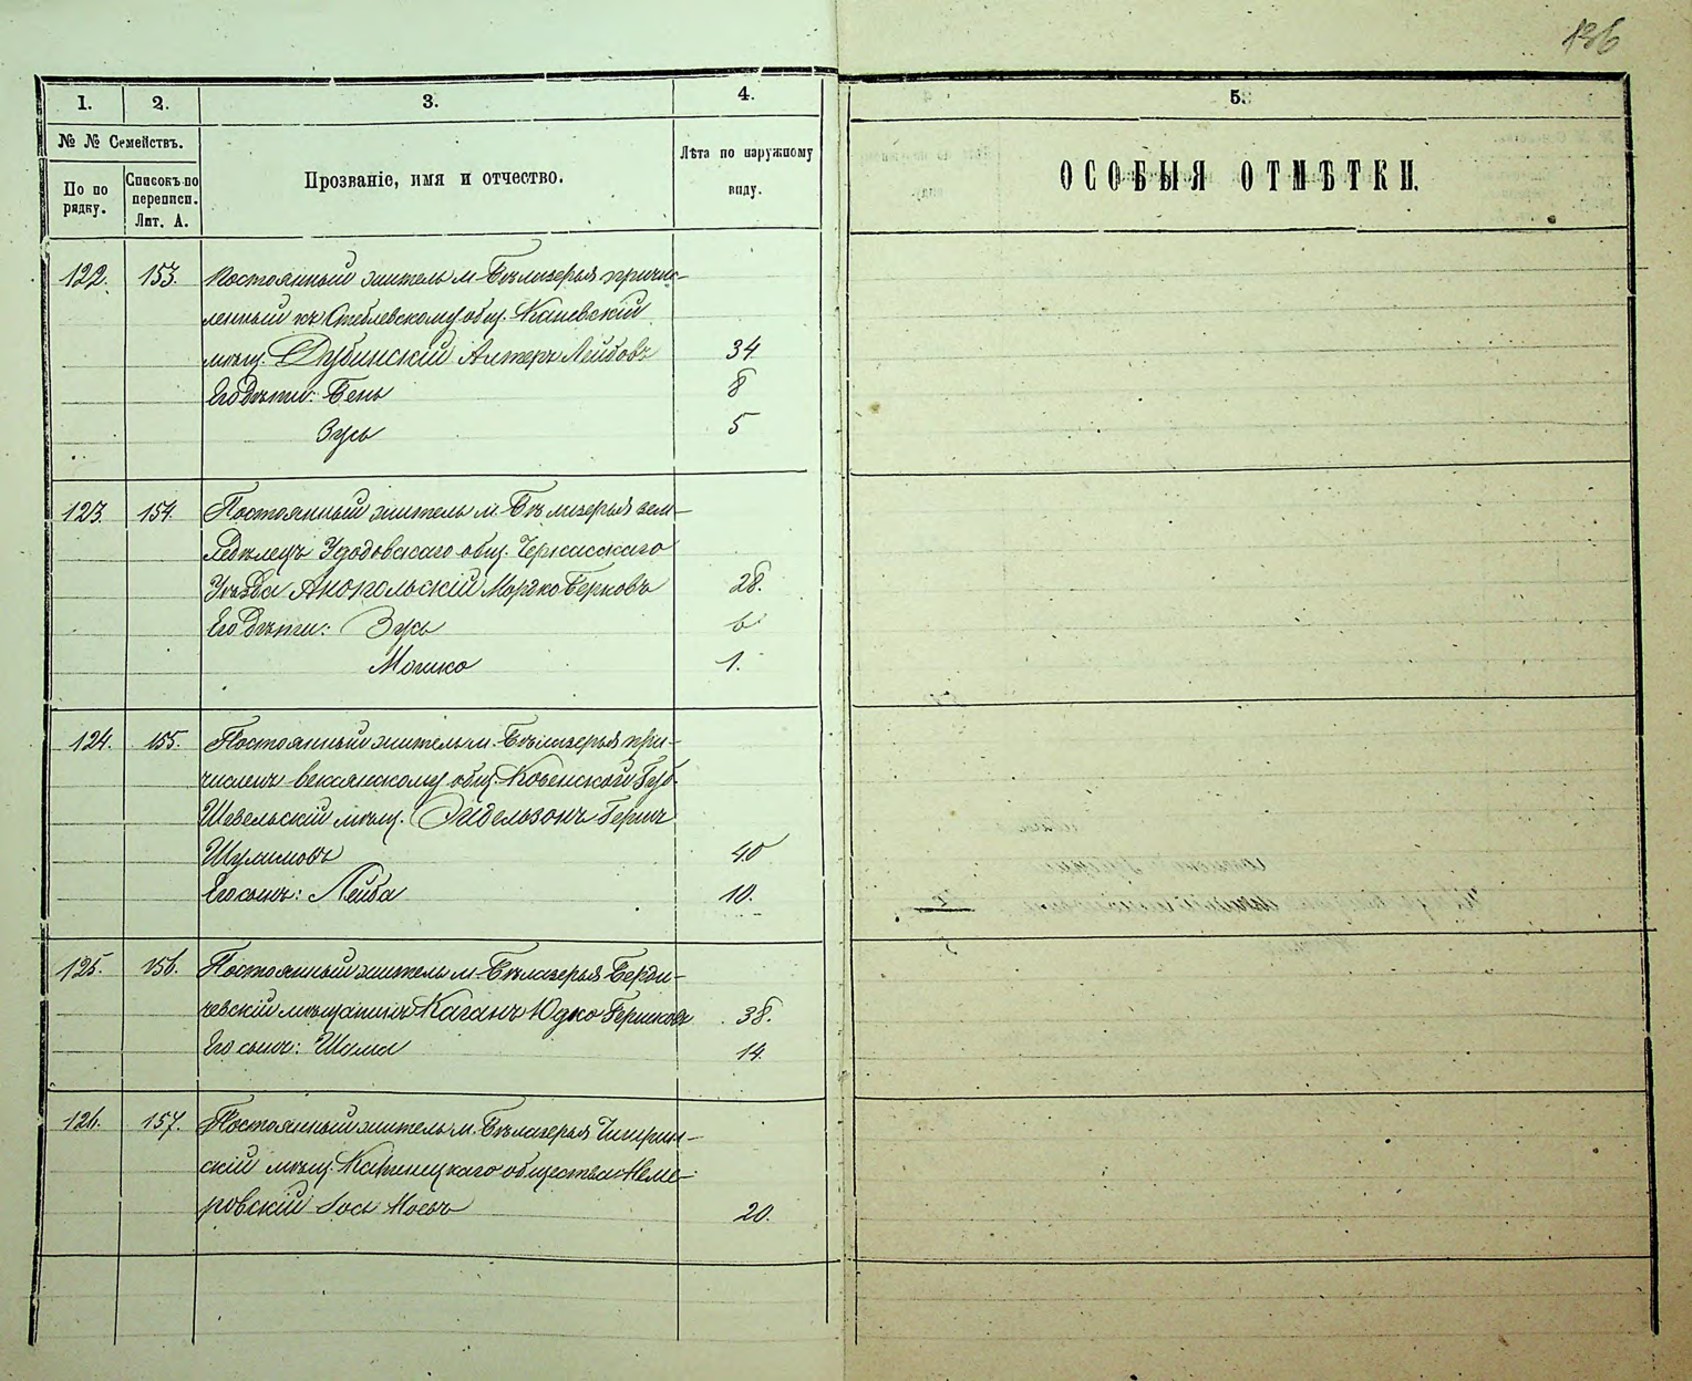 136
1. 2. 3. 4. 5.
№ № Семействъ.
По по рядку.
Списокъ по переписи. Лит. А.
Прозваніе, имя и отчество.
Лѣта по наружному виду.
ОСОБЫЯ ОТМѢТКИ.
122. 153. Постоянный житель м. Бѣлазерья причис-
ленный къ Стеблевскому общ. Каневскій
мѣщ. Дубинскій Алтеръ Лейбовъ 34
Его дѣти: Бень 8
Зусь 5
123. 154. Постоянный житель м. Бѣлазерья зем-
ледѣлецъ общ. Черкасскаго
Уѣзда Анопольскій Мордко Берковъ 28.
Его дѣти: Зусь 6
Мошко 1.
124. 155. Постоянный житель м. Бѣлазерья при-
численъ общ. Ковенской Губ.
Шавельскій мѣщ. Эйдельзонъ Герцъ
Шулимовъ 40
Его сынъ: Лейба 10.
125. 156. Постоянный житель м. Бѣлазерья Берди-
чевскій мѣщанинъ Каганъ Юдко Гершковъ 38.
Его сынъ: Шама 14.
126. 157. Постоянный житель м. Бѣлазерья Чигирин-
скій мѣщ. общества Неми-
ровскій 20.